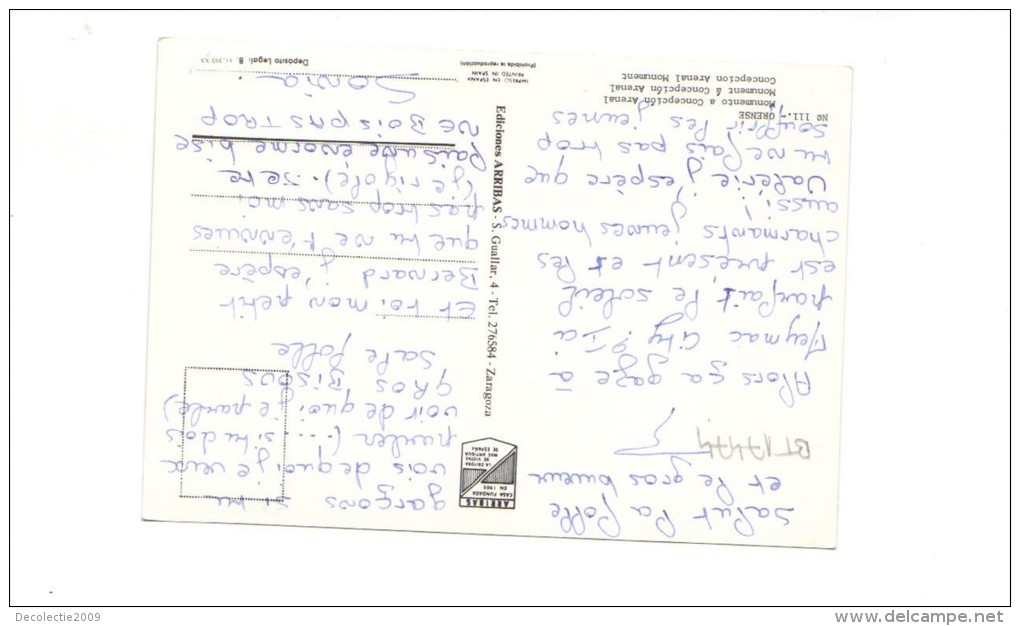 Salut la folle
et le gros buveur
BT17474
Alors ça gaze à
Meymac City? Ici
parfait, le soleil
est présent et les
charmants jeunes hommes
aussi!
Valérie j'espère que
tu ne fais pas trop
souffrir les jeunes
garçons si tu
vois de quoi je veux
parler (... si tu dois
voir de quoi je parle)
GROS BISOUS
sale folle
Et toi mon petit
Bernard j'espère
que tu ne t'ennuies
pas trop sans moi
(je rigole). Je te
fais une énorme bise
NE BOIS PAS TROP
Sonia.
Nº 111.- ORENSE
Monumento a Concepción Arenal
Monument á Concepción Arenal
Concepcion Arenal Monument
IMPRESO EN ESPAÑA
PRINTED IN SPAIN
(Prohibida la reproducción)
Depósito Legal: B.
Ediciones ARRIBAS - S. Guallar, 4 - Tel. 276584 - Zaragoza
ARRIBAS
CASA FUNDADA
EN 1905
LA EDITORA
DE VISTAS
MAS ANTIGUA
DE ESPAÑA
Decolectie2009
www.delcampe.net